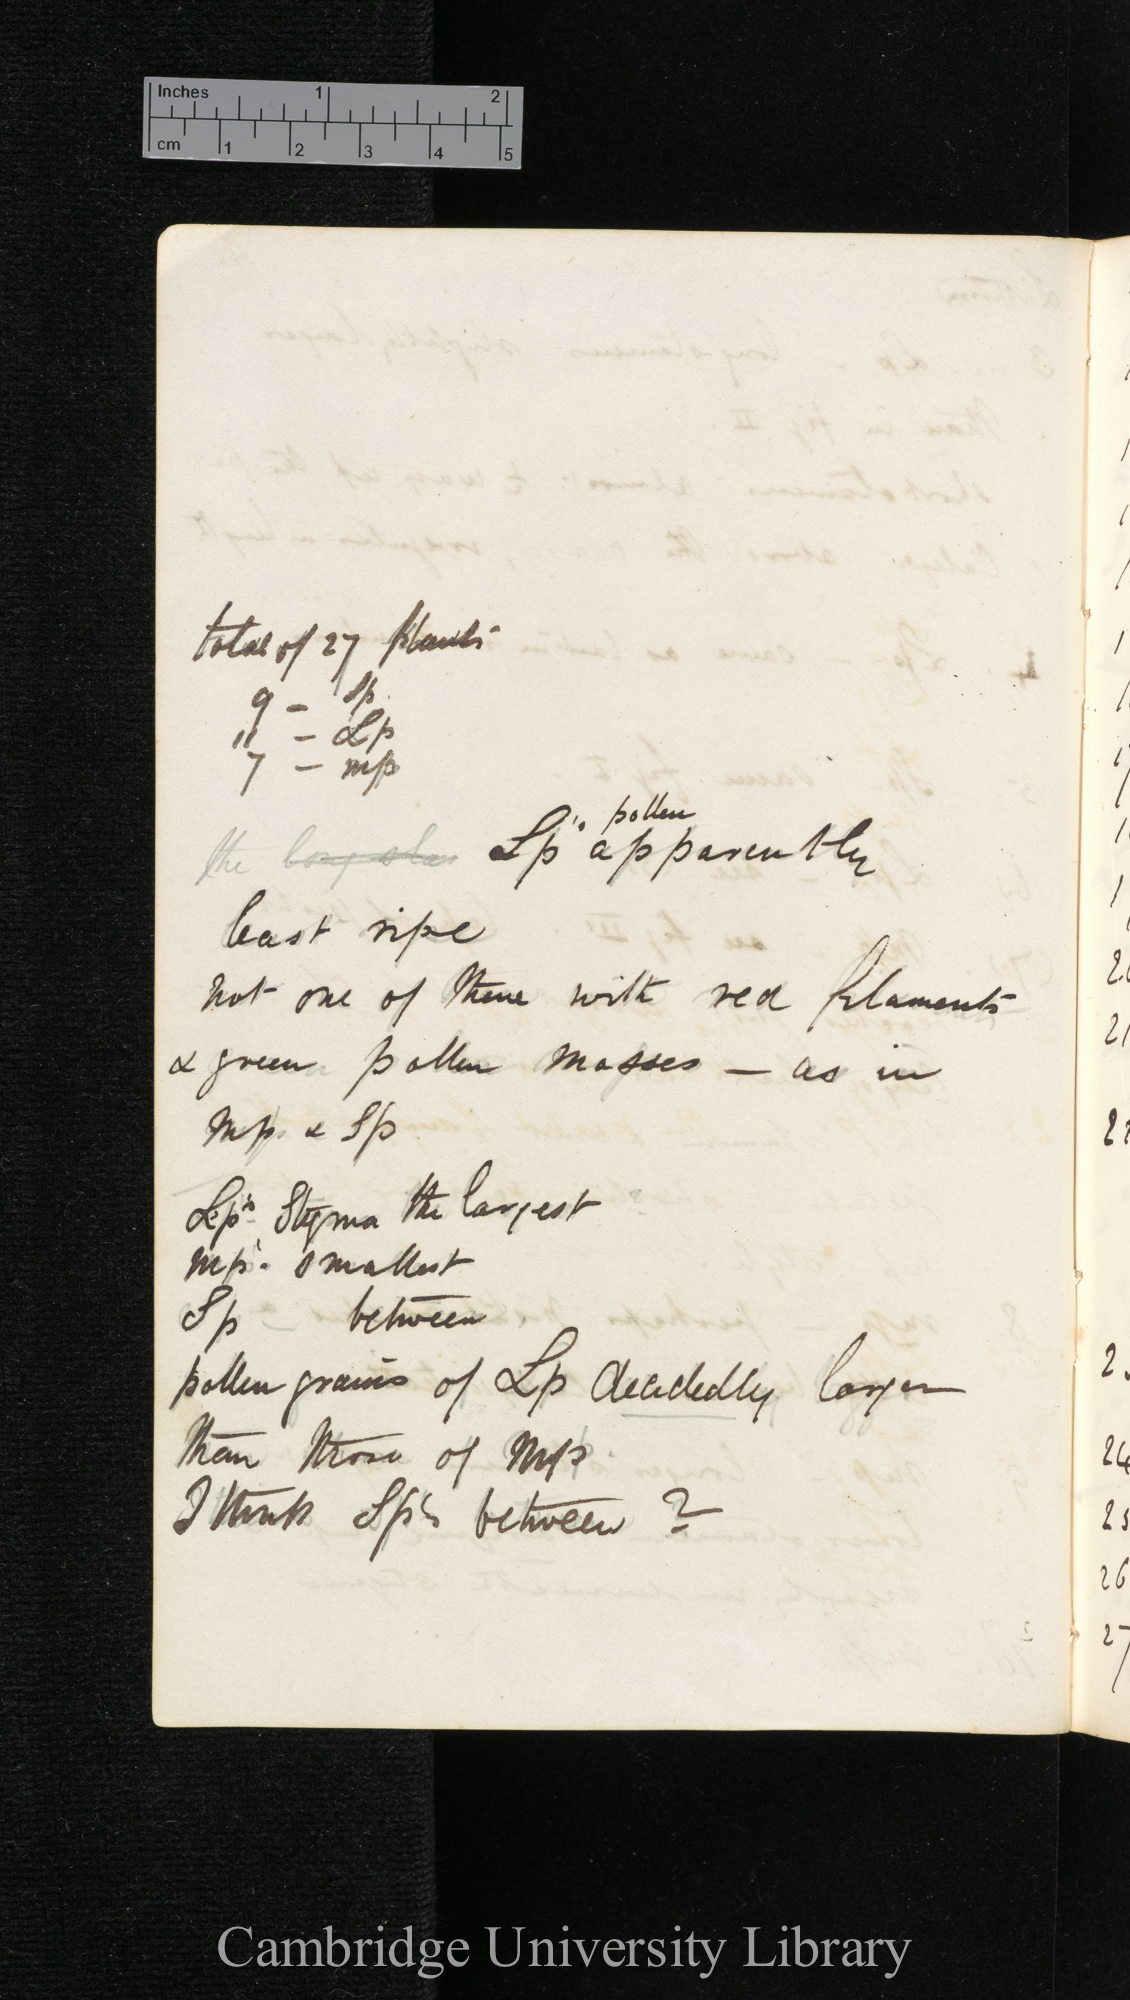 Inches 1 2
cm 1 2 3 4 5
total of 27 plants
9 – Sp
11 – Lp
7 – mp
pollen
the long sta Lp's apparently
least ripe
not one of them with red filaments
& green pollen masses — as in
Mp & Sp
Lp's Stigma the largest
Mp's smallest
Sp between
pollen grains of Lp decidedly larger
than those of Mp
I think Sp's between ?
20
21
24
25
26
27
Cambridge University Library